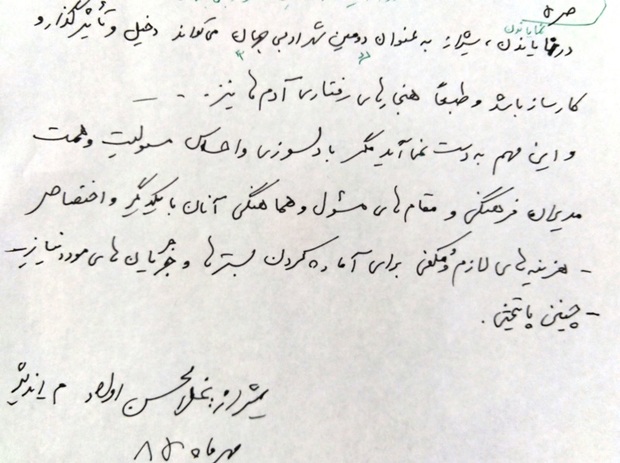 نمایاندن
در نمایاندن، شیراز به عنوان «دومین شهر ادبی جهان» می‌تواند دخیل و تأثیرگذار و
کارساز باشد و طبعاً هنجارهای رفتاری آدم‌ها نیز. . . —
و این مهم به دست نمی‌آید مگر با دلسوزی و احساس مسئولیت و همت
مدیران فرهنگی و مقام‌های مسئول و هماهنگی آنان با یکدیگر و اختصاص
- هزینه‌های لازم و مکفی برای آماده کردن بسترها و جریان‌های مورد نیاز
- چنین پایتختی.
شیراز: غلامحسن اولاد م اندیش
مهر ماه ۸۵